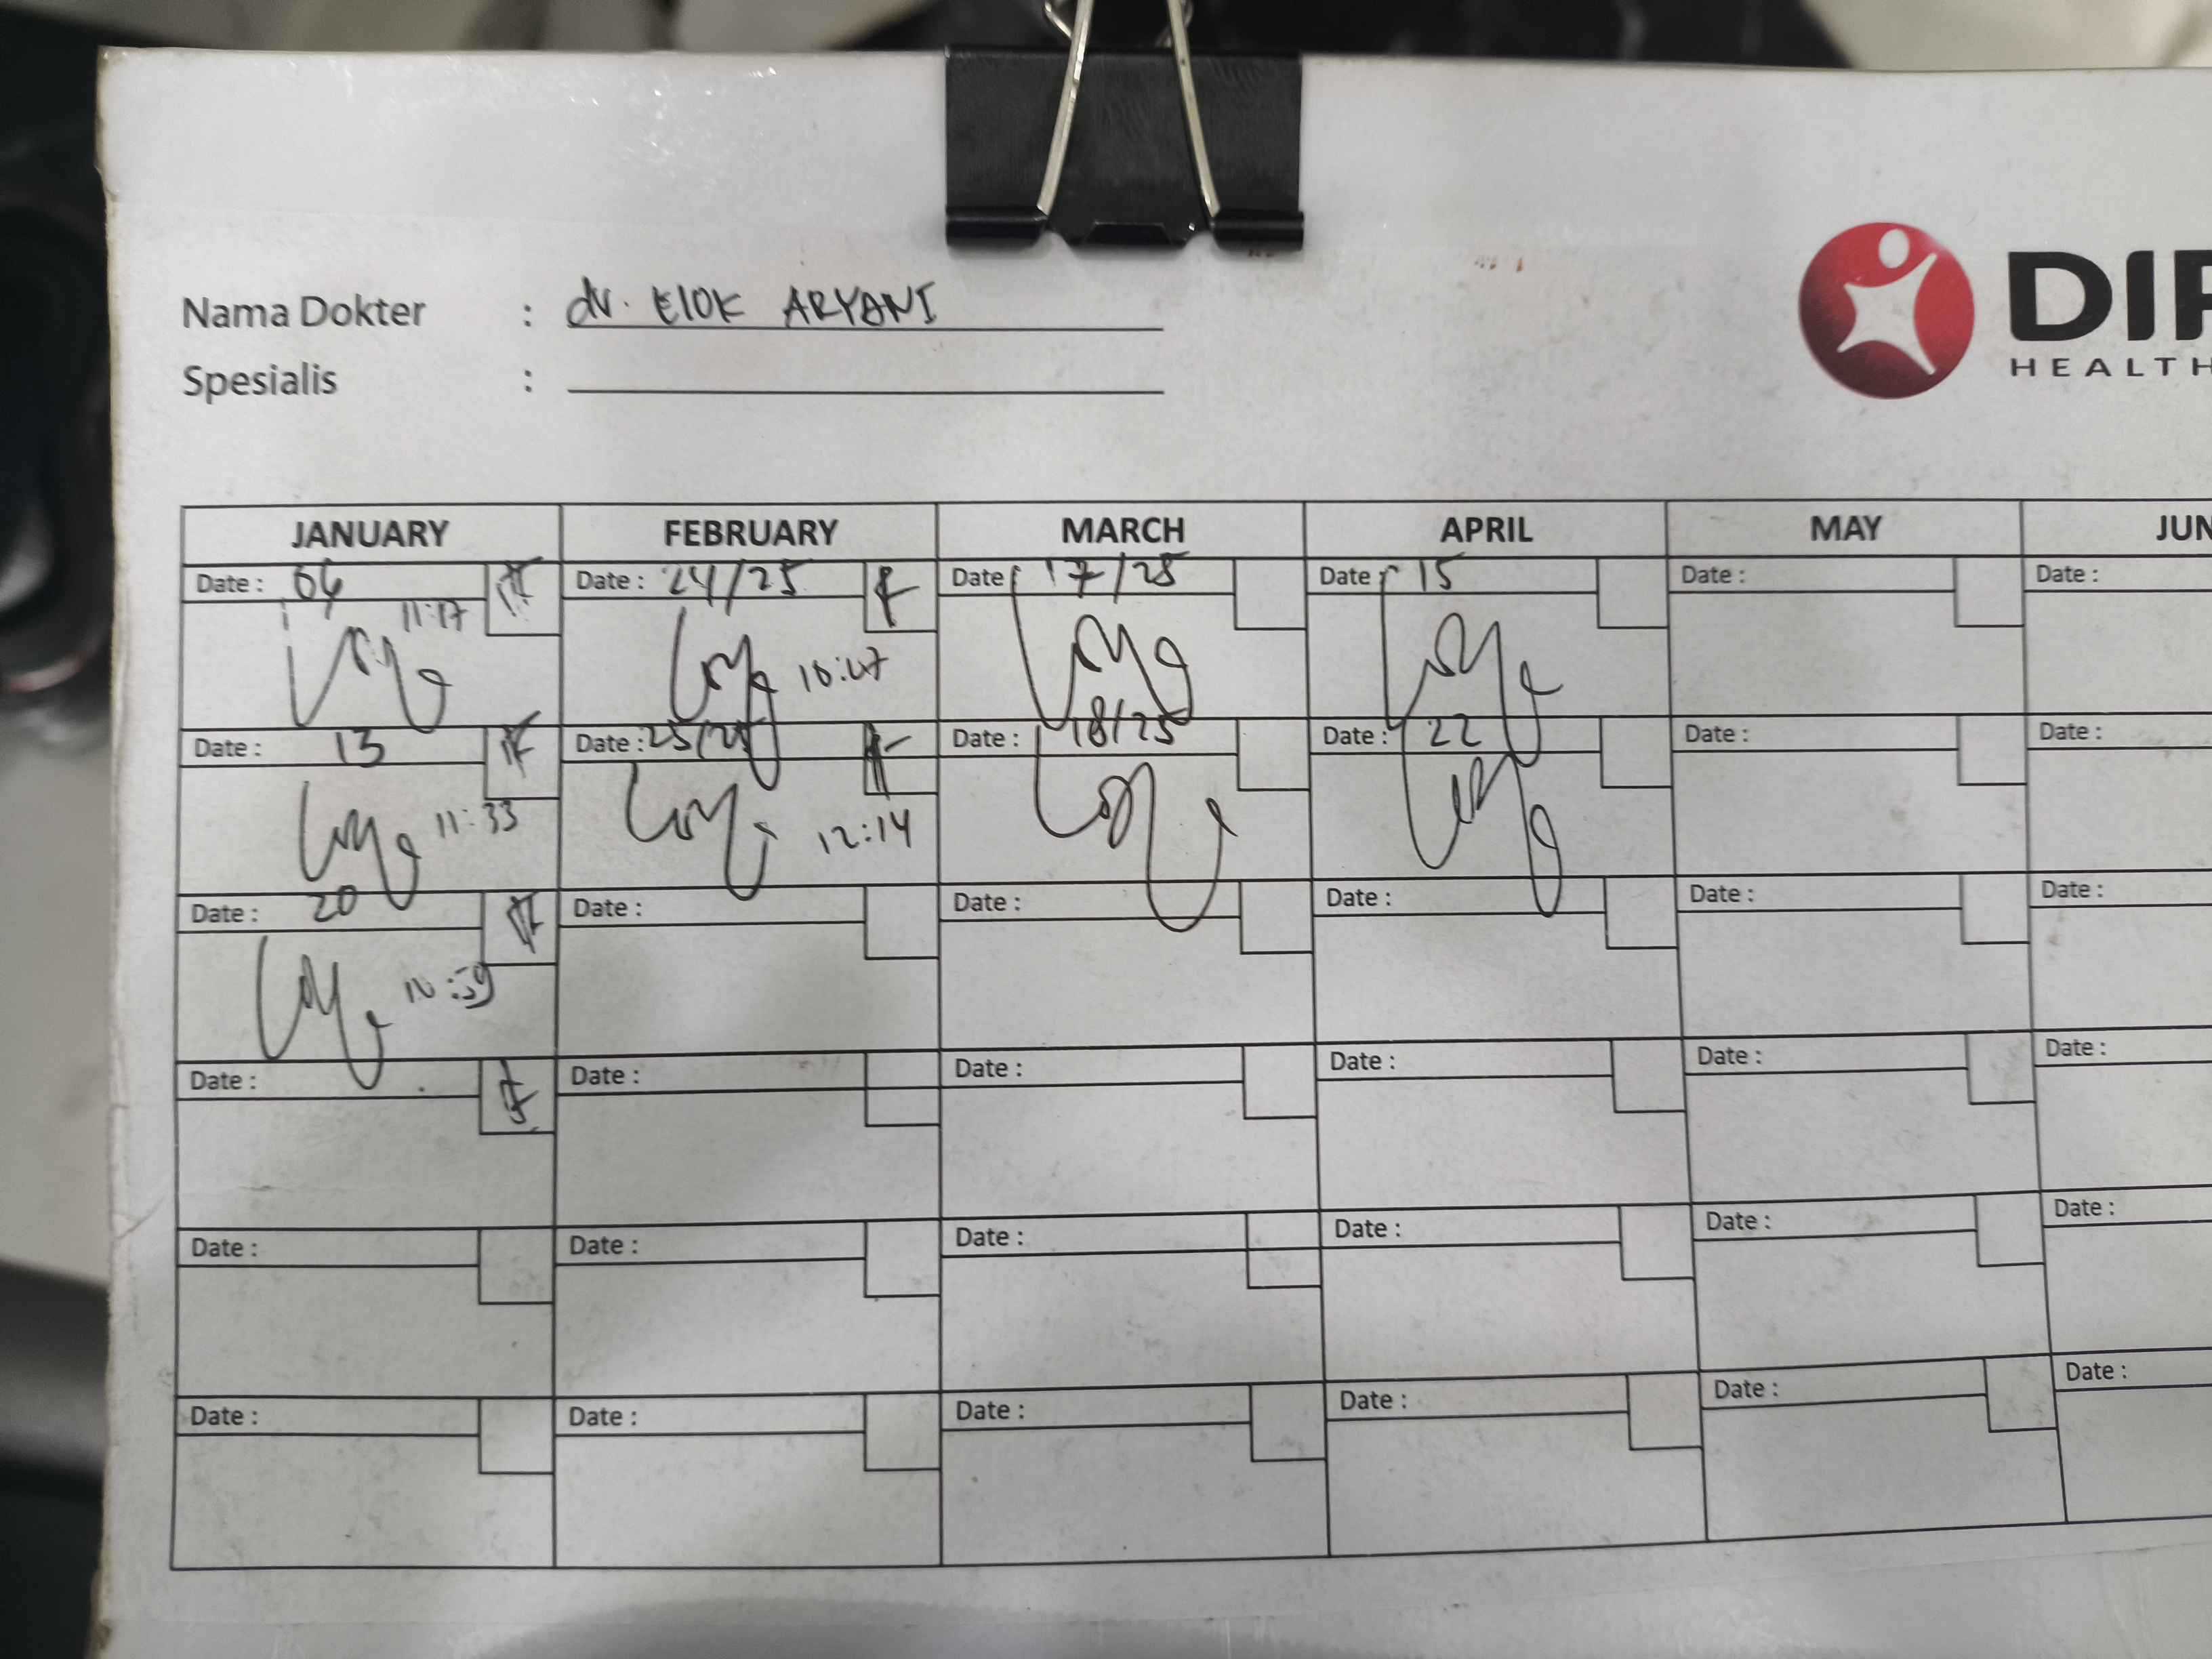 Nama Dokter : dr. ElOK ARYANI
Spesialis :
DIP
HEALTH
JANUARY FEBRUARY MARCH APRIL MAY JUN
Date : 06 Date : 24/25 Date 17/25 Date 15 Date : Date :
11:17 10:47
Date : 13 Date : 25/25 Date : 18/25 Date : 22 Date : Date :
11:33 12:14
Date : 20 Date : Date : Date : Date : Date :
10:59
Date : Date : Date : Date : Date : Date :
Date : Date : Date : Date : Date : Date :
Date : Date : Date : Date : Date : Date :